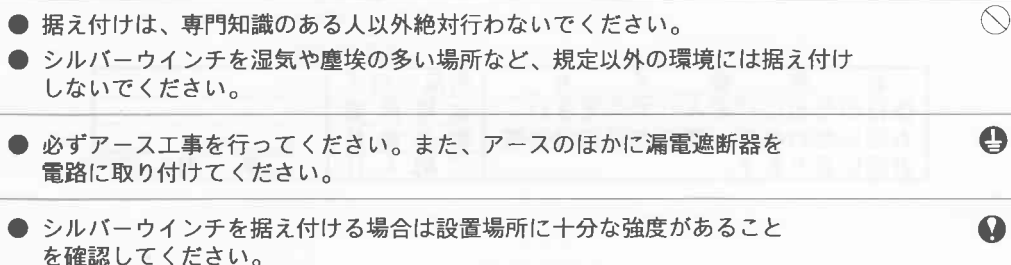 ● 据え付けは、専門知識のある人以外絶対行わないでください。
● シルバーウインチを湿気や塵埃の多い場所など、規定以外の環境には据え付け
しないでください。
● 必ずアース工事を行ってください。また、アースのほかに漏電遮断器を
電路に取り付けてください。
● シルバーウインチを据え付ける場合は設置場所に十分な強度があること
を確認してください。